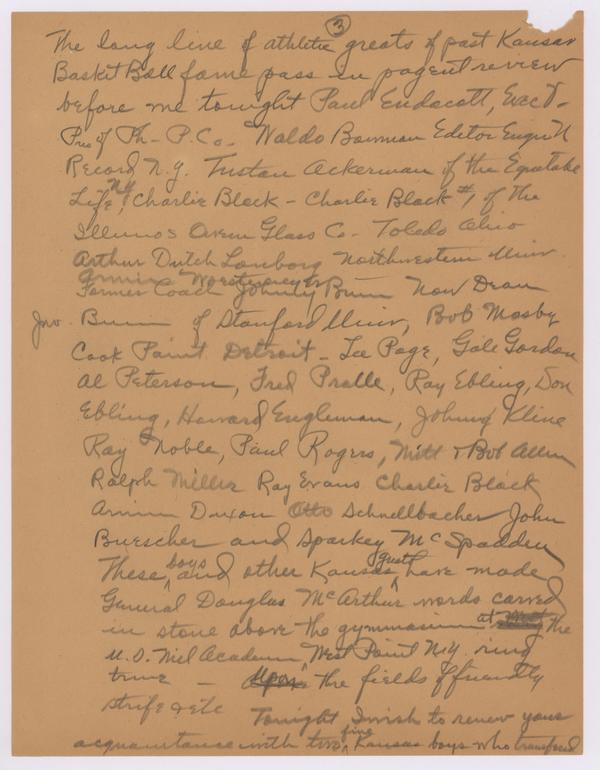 3
The long line of athletic greats of past Kansas
Basket Ball fame pass in pagent review
before me tonight Paul Endacott, Exec V-
Pres of Ph-P. Co. Waldo Bowman Editor Engr N
Record N.Y. Tustan Ackerman of the Equitable
Life, N.Y. Charlie Black - Charlie Black #1 of the
Illinois Owen Glass Co - Toledo Ohio
Arthur Dutch Lonborg Northwestern Univ.
Armin Woestemeyer
Former Coach Johnny Bunn Now Dean
Bunn of Stanford Univ, Bob Mosby
Cook Paint Detroit - Ted Page, Gale Gordon
Al Peterson, Fred Pralle, Ray Ebling, Don
Ebling, Howard Engleman, Johnny Kline
Ray Noble, Paul Rogers, Mitt & Bob Allen
Ralph Miller Ray Evans Charlie Black
Armin Dixon Otto Schnellbacher John
Buescher and Sparkey McSpadden
These boys and other Kansas greats have made
General Douglas McArthur words carved
in stone above the gymnasium at the
U.S. Mil Academy, West Point N.Y. ring
true - Upon the fields of friendly
strife & etc
Tonight I wish to renew your
acquaintance with two fine Kansas boys who transfered